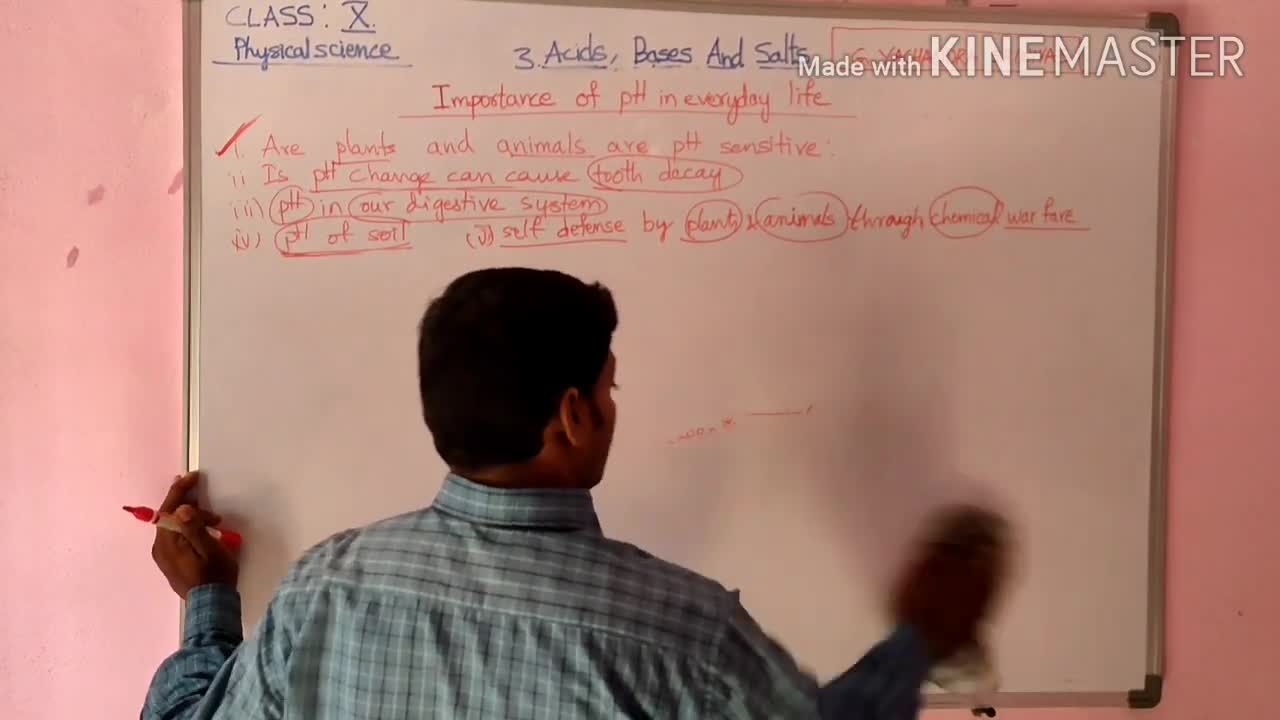 CLASS: X.
Physical science
3. Acids, Bases And Salts
Made with KINEMASTER
Importance of pH in everyday life
i. Are plants and animals are pH sensitive:
ii Is pH change can cause tooth decay
iii) pH in our digestive system
iv) pH of soil (v) self defense by plants & animals through chemical war fare